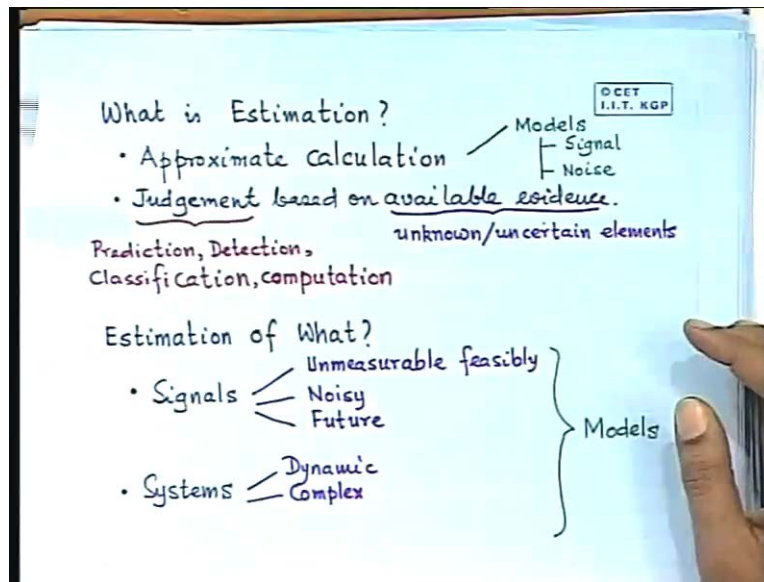 © CET
I.I.T. KGP
What is Estimation?
• Approximate calculation
Models
Signal
Noise
• Judgement based on available evidence.
unknown/uncertain elements
Prediction, Detection,
Classification, computation
Estimation of What?
• Signals
Unmeasurable feasibly
Noisy
Future
Models
• Systems
Dynamic
Complex